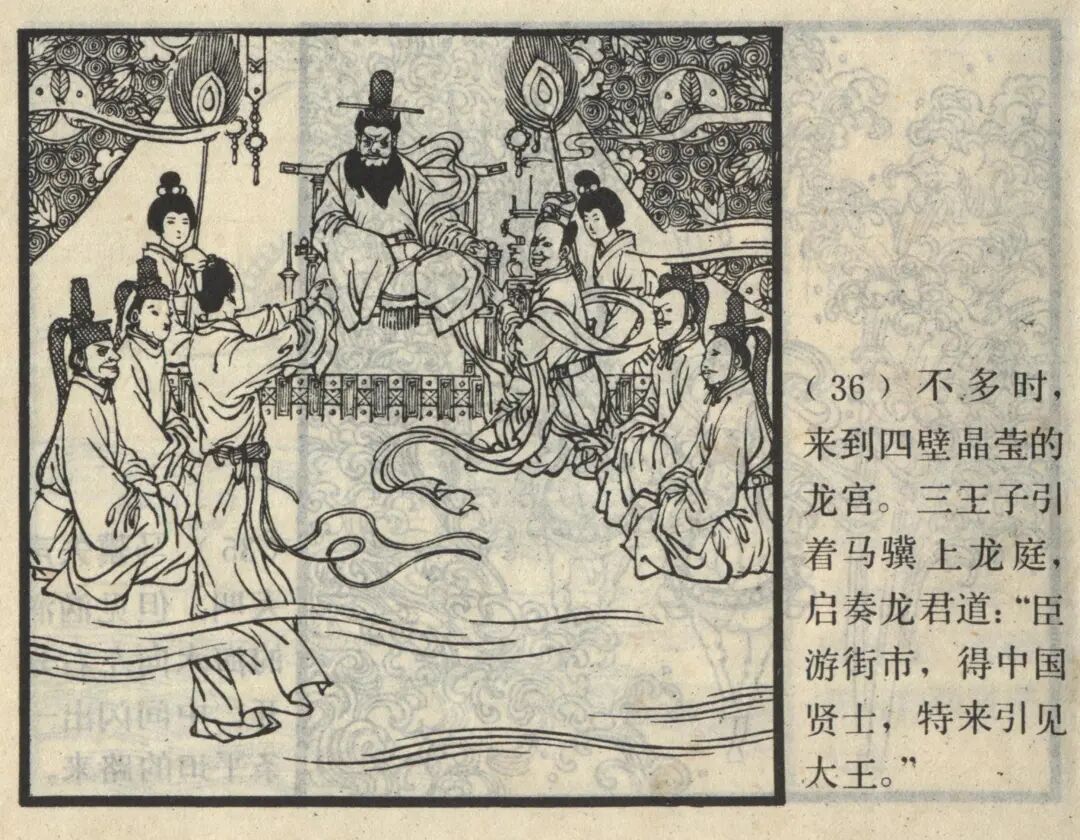 （36）不多时，
来到四壁晶莹的
龙宫。三王子引
着马骥上龙庭，
启奏龙君道：“臣
游街市，得中国
贤士，特来引见
大王。”